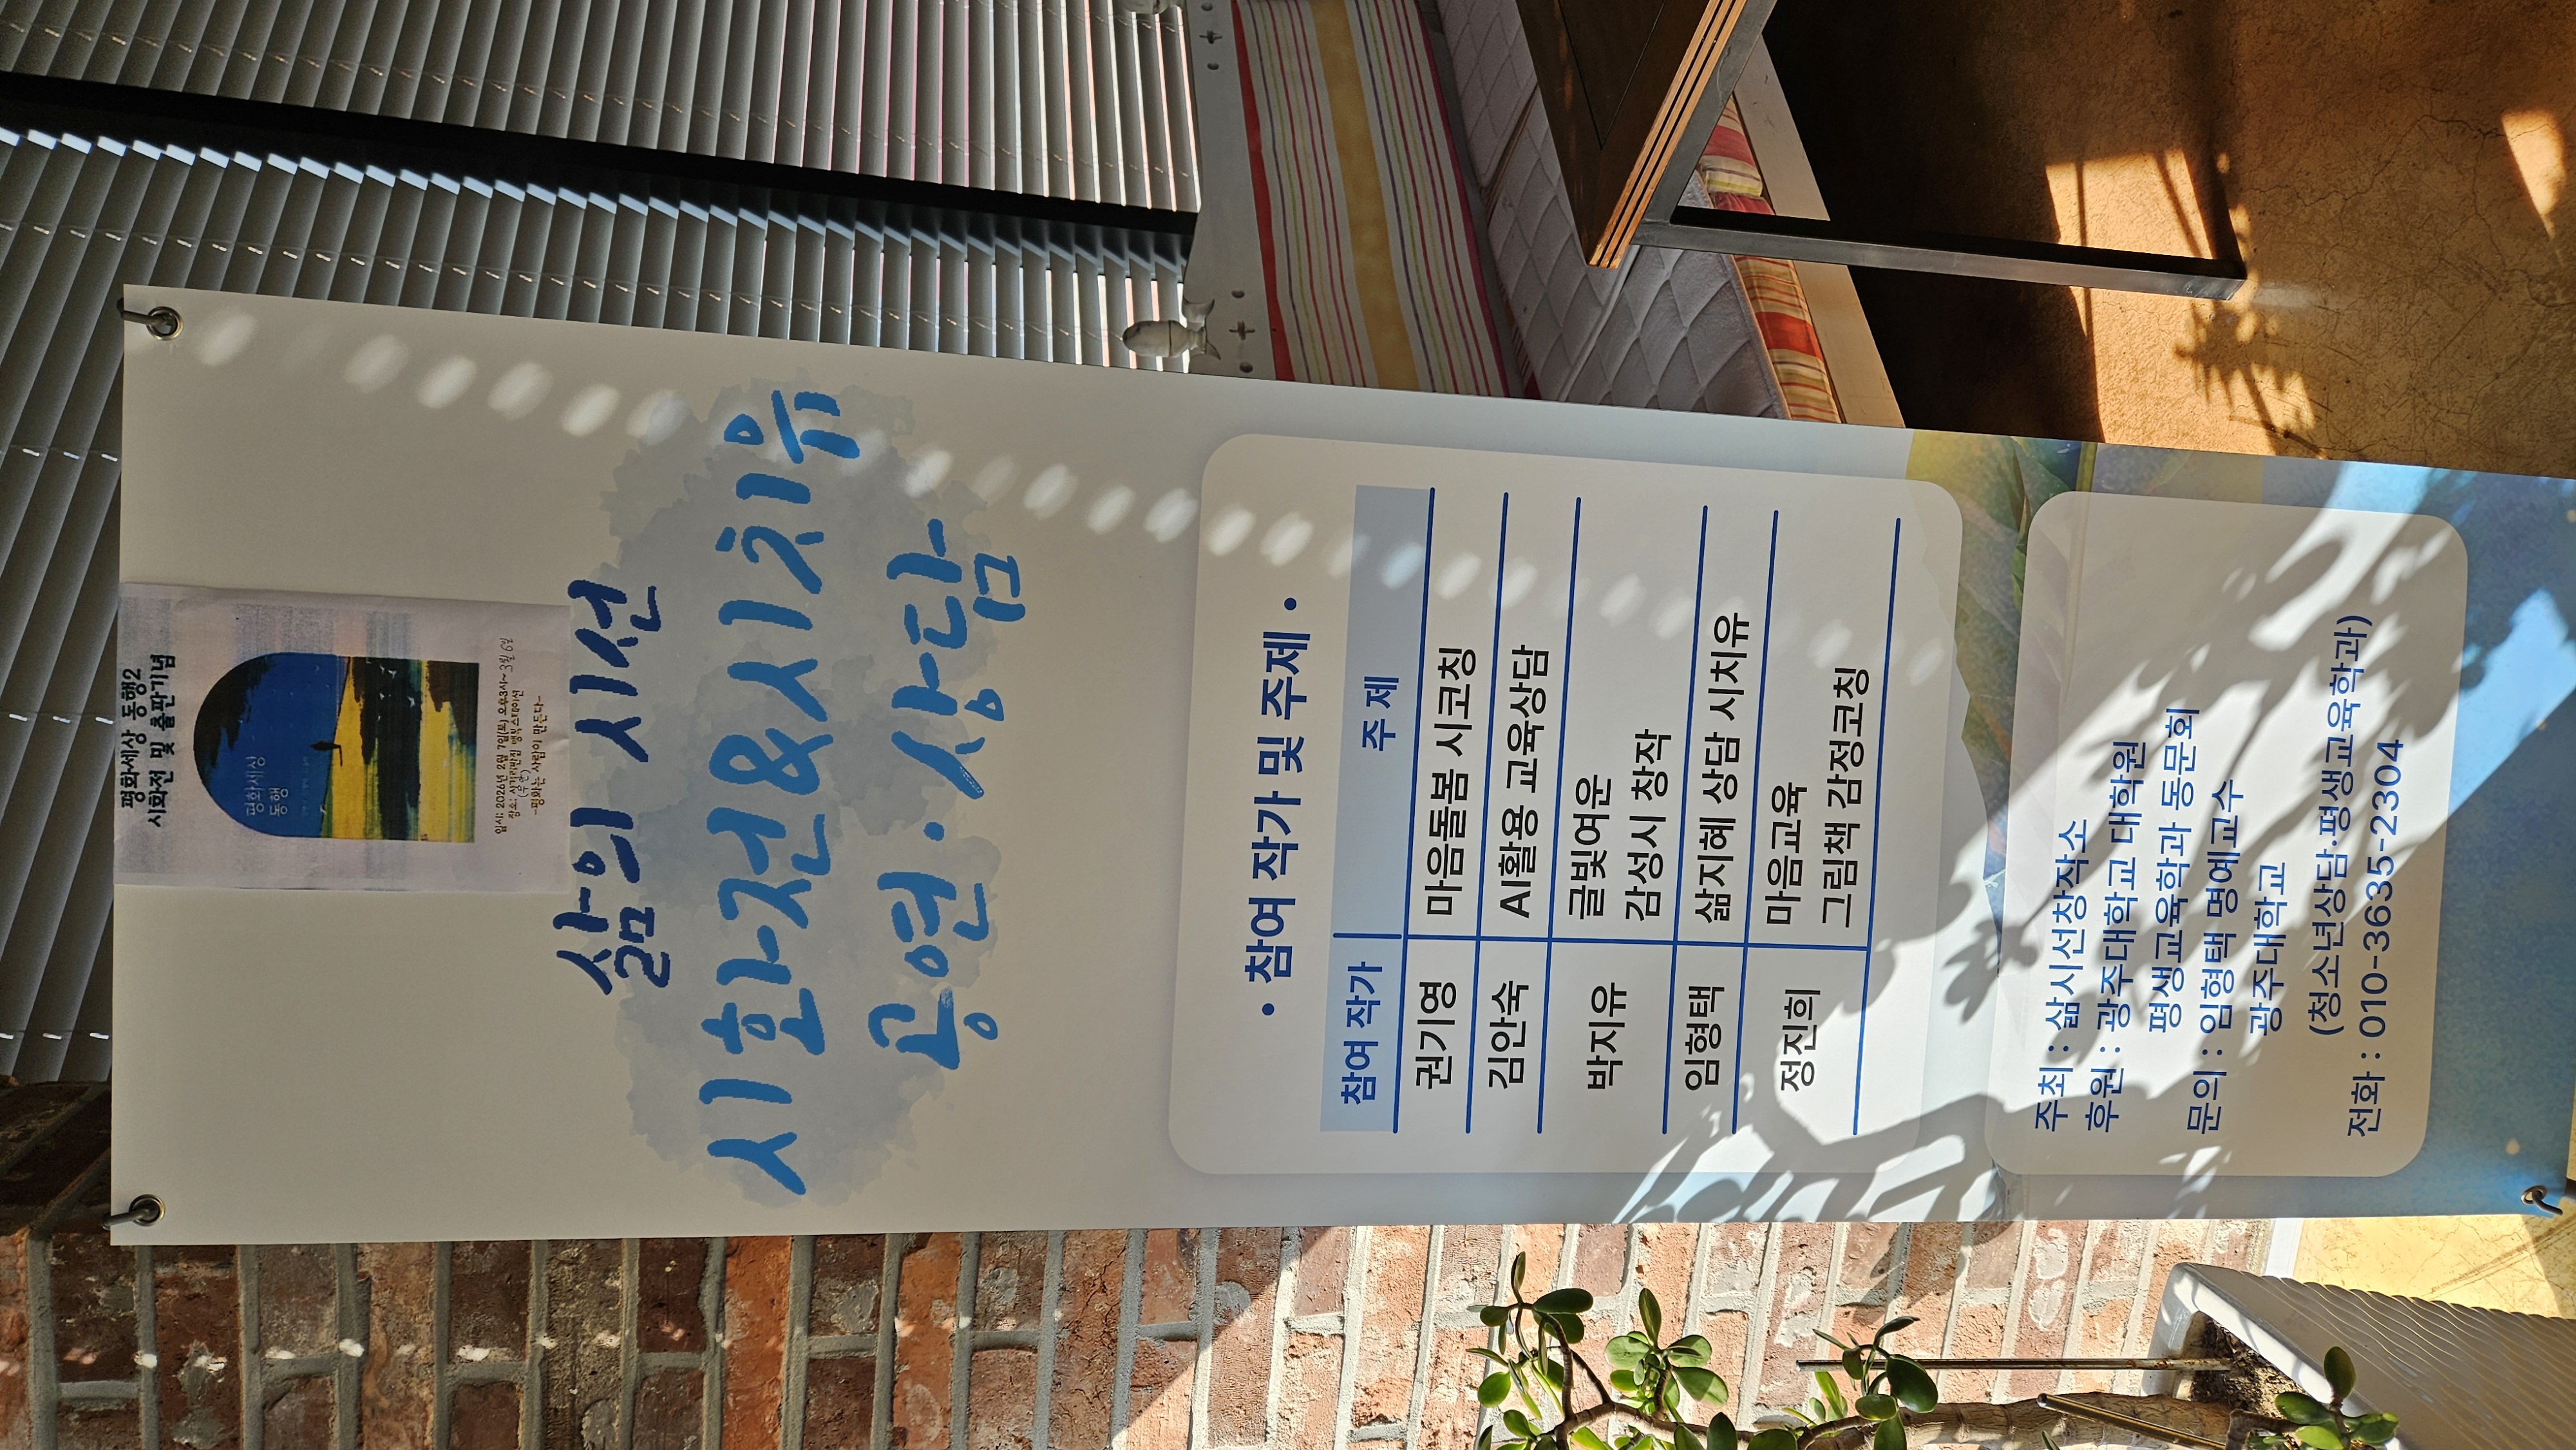 평화세상 동행2
시화전 및 출판기념
평화세상
동행
일시: 2026년 2월 7일(토) 오후3시~3월 6일
-평화는 사람이 만든다-
삶의 시선
시화전&시치유
공연·상담
• 참여 작가 및 주제 •
참여 작가 주 제
권기영 마음돌봄 시코칭
김안숙 AI활용 교육상담
박지유 글빛여운
감성시 창작
임형택 삶지혜 상담 시치유
정진희 마음교육
그림책 감정코칭
주최 : 삶시선창작소
후원 : 광주대학교 대학원
평생교육학과 동문회
문의 : 임형택 명예교수
광주대학교
(청소년상담.평생교육학과)
전화 : 010-3635-2304